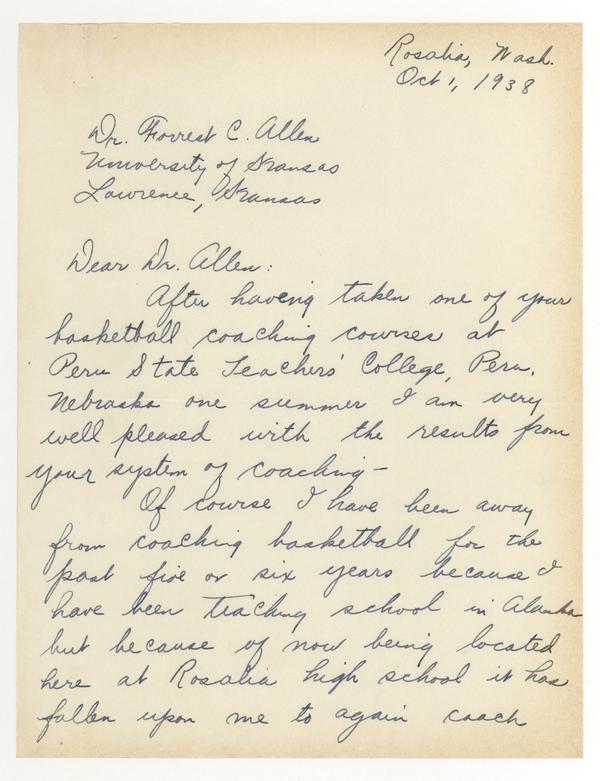 Rosalia, Wash.
Oct 1, 1938
Dr. Forrest C. Allen
University of Kansas
Lawrence, Kansas
Dear Dr. Allen:
After having taken one of your
basketball coaching courses at
Peru State Teachers' College, Peru,
Nebraska one summer I am very
well pleased with the results from
your system of coaching -
Of course I have been away
from coaching basketball for the
past five or six years because I
have been teaching school in Alaska
but because of now being located
here at Rosalia high school it has
fallen upon me to again coach